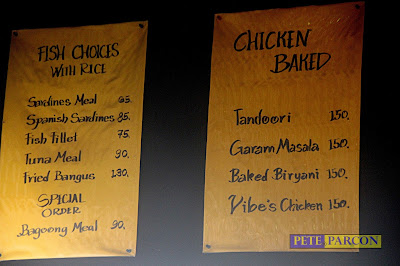 FISH CHOICES
WITH RICE
Sardines Meal 65.
Spanish Sardines 85.
Fish Fillet 75.
Tuna Meal 90.
Fried Bangus 130.
SPECIAL
ORDER
Bagoong Meal 90.
CHICKEN
BAKED
Tandoori 150.
Garam Masala 150.
Baked Biryani 150.
Vibe's Chicken 150.
PETE PARCON